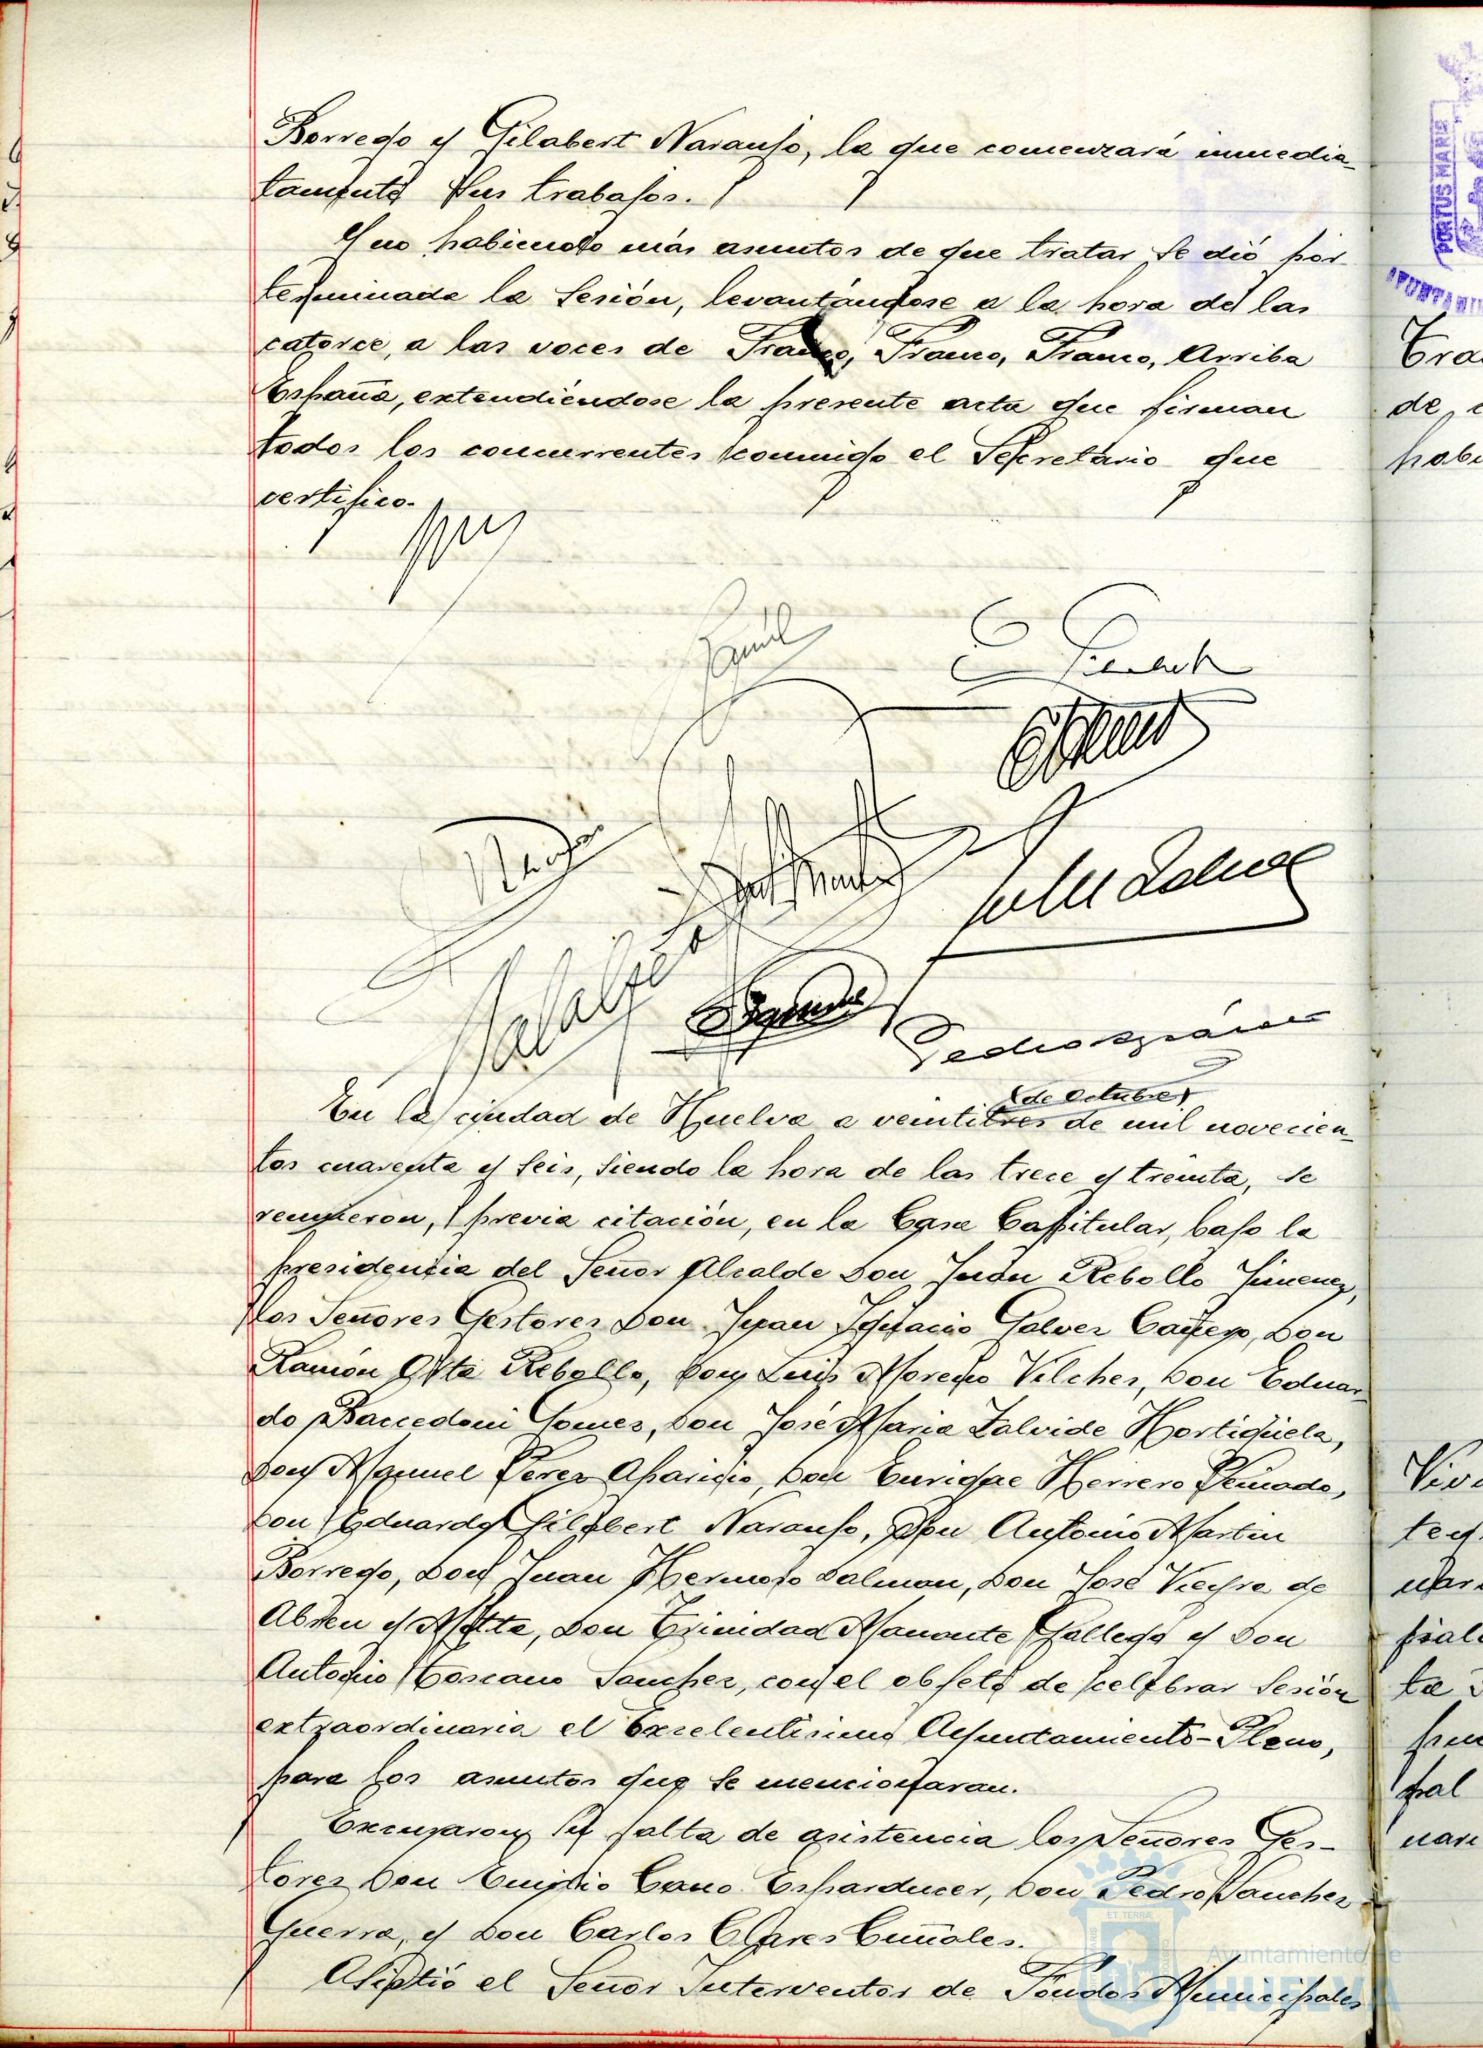 Borrego y Gilabert Naranjo, la que comenzará inmedia-
tamente sus trabajos.
Y no habiendo más asuntos de que tratar se dió por
terminada la Sesión, levantándose a la hora de las
catorce, a las voces de Franco, Franco, Franco, Arriba
España, extendiéndose la presente acta que firman
todos los concurrentes conmigo el Secretario que
certifico.
(de Octubre)
En la ciudad de Huelva a veintitres de mil novecien-
tos cuarenta y seis, siendo la hora de las trece y treinta, se
reunieron, previa citación, en la Casa Capitular, bajo la
presidencia del Señor Alcalde Don Juan Rebollo Jimenez,
los Señores Gestores Don Juan Ignacio Galvez Cañero, Don
Ramón Orta Rebollo, Don Luis Moreno Vilches, Don Eduar-
do Baccedoni Gomez, Don José Maria Zalvide Hortigüela,
Don Manuel Perez Aparicio, Don Enrique Herrero Peinado,
Don Eduardo Gilabert Naranjo, Don Antonio Martin
Borrego, Don Juan Hermoso Salmon, Don José Vieyra de
Abreu y Motta, Don Trinidad Manante Gallego y Don
Antonio Toscano Sanchez, con el objeto de celebrar Sesión
extraordinaria el Excelentisimo Ayuntamiento-Pleno,
para los asuntos que se mencionaran.
Excusaron su falta de asistencia los Señores Ges-
tores Don Emilio Cano Esparducer, Don Pedro Sanchez
Guerra, y Don Carlos Clares Cuñales.
Asistió el Señor Interventor de Fondos Municipales
PORTUS MARIS
ET TERRAE
Ayuntamiento de
HUELVA